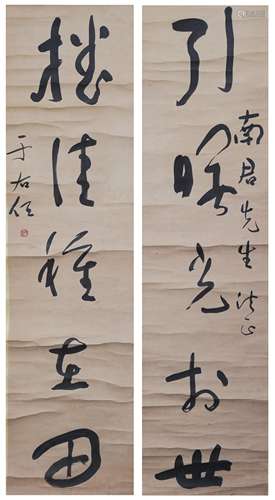 南君先生法正
引曙光於世
播佳種在田
于右任